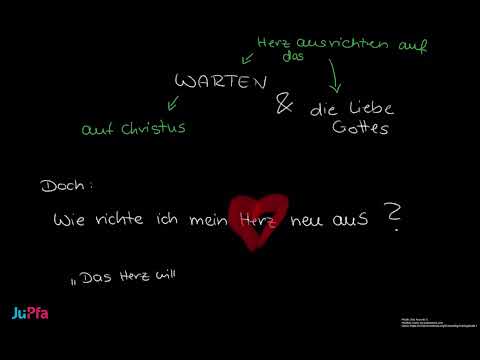 Herz ausrichten auf
das
WARTEN
&
die Liebe
Gottes
auf Christus
Doch:
Wie richte ich mein Herz neu aus ?
„Das Herz will
JuPfa